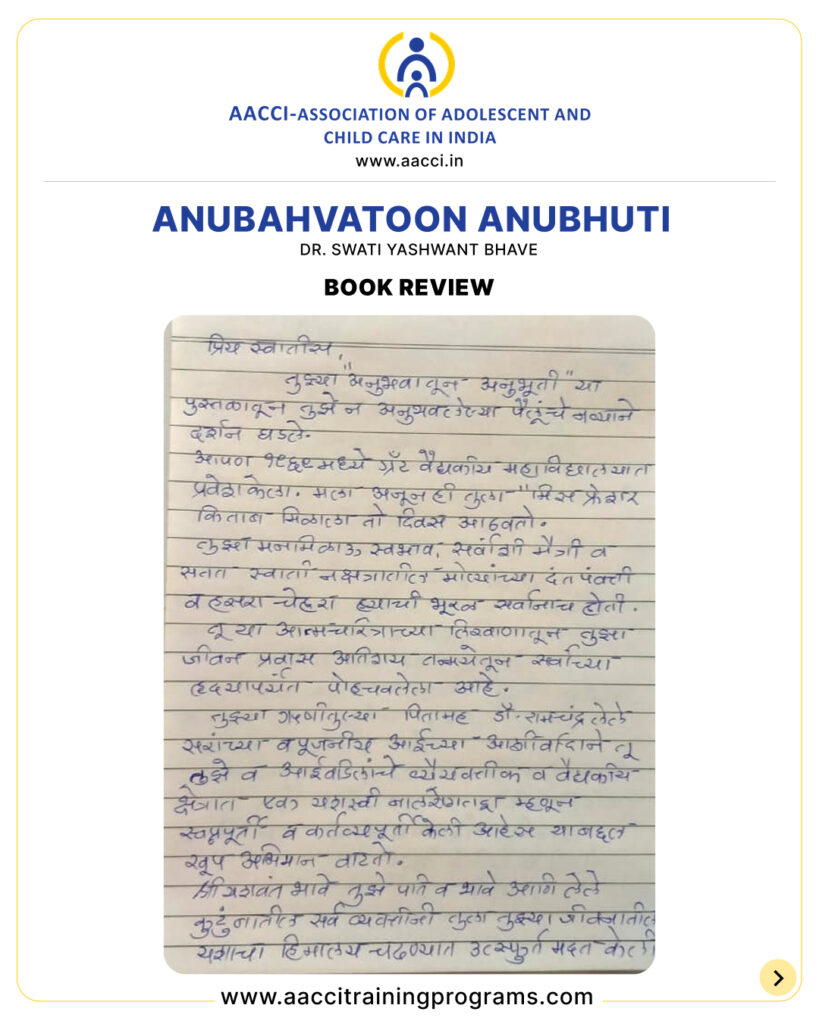 AACCI-ASSOCIATION OF ADOLESCENT AND
CHILD CARE IN INDIA
www.aacci.in
ANUBAHVATOON ANUBHUTI
DR. SWATI YASHWANT BHAVE
BOOK REVIEW
प्रिय स्वातीस,
तुझ्या "अनुभवातून अनुभूती" या
पुस्तकातून तुझे न अनुभवलेल्या पैलूंचे नव्याने
दर्शन घडले.
आपण १९६९मध्ये ग्रँट वैद्यकीय महाविद्यालयात
प्रवेश केला. मला अजून ही तुला "मिस फ्रेशर
किताब मिळाला तो दिवस आठवतो.
तुझा मनमिळाऊ स्वभाव, सर्वांशी मैत्री व
सतत स्वाती नक्षत्रातील मोत्यांच्या दंत पंक्ती
व हसरा चेहरा ह्याची भूरळ सर्वांनाच होती.
तू या आत्मचरित्राच्या लिखाणातून तुझा
जीवन प्रवास अतिशय तन्मयेतून सर्वांच्या
हृदयापर्यंत पोहचवलेला आहे.
तुझ्या पितामह डॉ. रामचंद्र लेले
सरांच्या व पूजनीय आईच्या आशीर्वादाने तू
तुझे व आईवडिलांचे वैयक्तीक व वैद्यकीय
क्षेत्रात एक यशस्वी बालरोगतज्ञ म्हणून
स्वप्नपूर्ती व कर्तव्यपूर्ती केली आहेस याबद्दल
खूप अभिमान वाटतो.
श्री यशवंत भावे तुझे पति व भावे आणि लेले
कुटुंबातील सर्व व्यक्तींनी तुला तुझ्या जीवनातील
यशाचा हिमालय चढण्यात उत्स्फुर्त मदत केली
www.aaccitrainingprograms.com